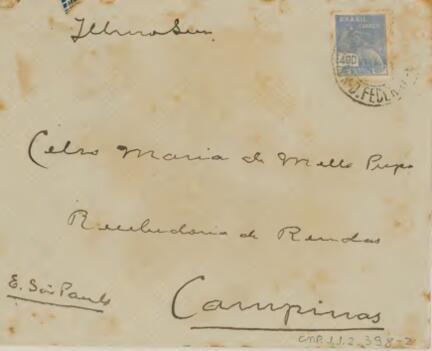 Illmo Snr
BRASIL CORREIO
400
D. FEDERAL
Celso Maria de Mello Pupo
Recebedoria de Rendas
E. São Paulo
Campinas
CMP.1.1.2.398-2